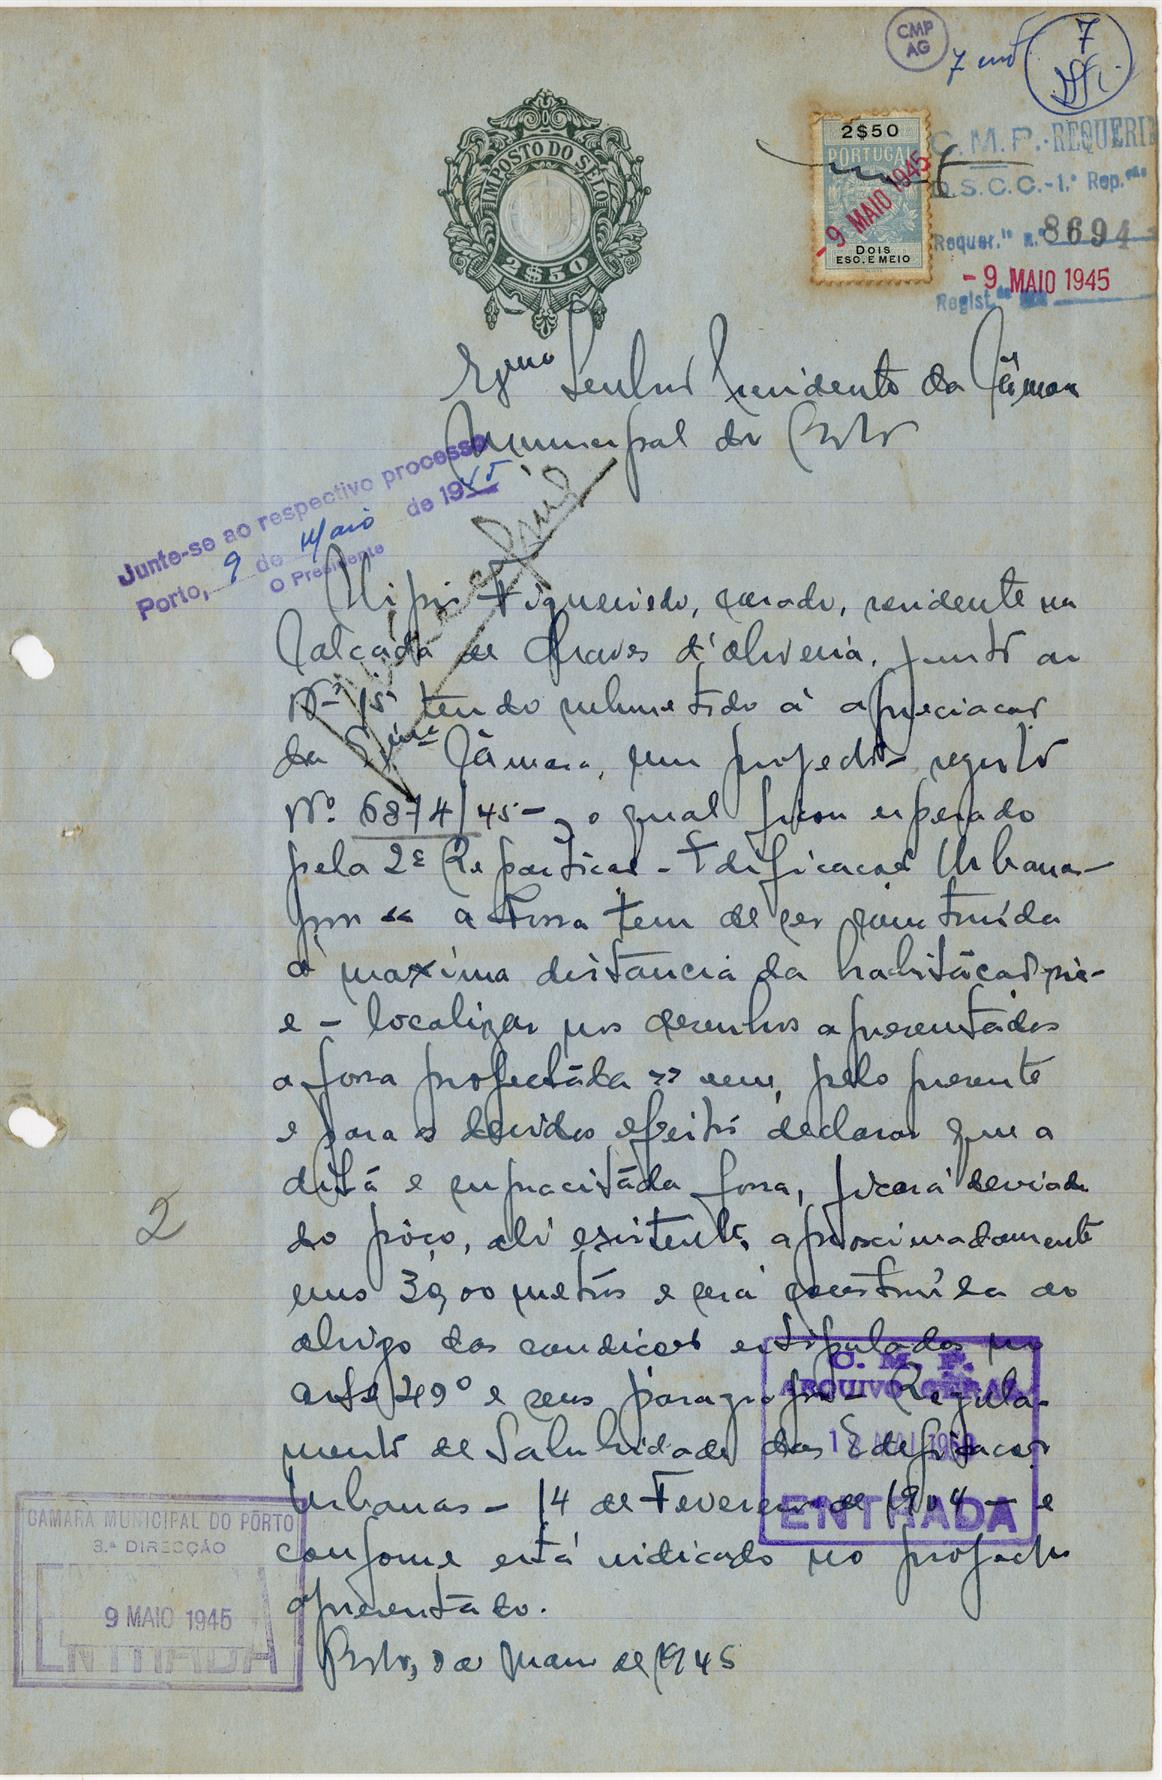 CMP
AG
7
IMPOSTO DO SELO
2$50
2$50
PORTUGAL
- 9 MAIO 1945
DOIS
ESC. E MEIO
C. M. P. - REQUERI
D. S. C. C. - 1.ª Rep.
Requer.to n.º 8694
- 9 MAIO 1945
Regist.
Exmo Senhor Presidente da Câmara
Municipal do Porto
Junte-se ao respectivo processo
Porto, 9 de Maio de 1945
O Presidente
Figueiredo, casado, residente na
Calçada de Chaves d'Oliveira, junto ao
Nº 15 tendo submetido à apreciação
da Exma Câmara, um projecto registo
Nº 6874/45 - o qual ficou esperado
pela 2ª Repartição - Edificações Urbanas -
por « a Fossa tem de ser construída
à maxima distância da habitação
e - localizar nos desenhos apresentados
a fossa projectada » vem, pelo presente
e para os devidos efeitos declarar que a
dita e supracitada fossa, ficará desviada
do pôço, ali existente, aproximadamente
uns 30,00 metros e será construída ao
abrigo das condições estipuladas no
artº 49º e seus paragrafos - Regula-
mento de Salubridade das Edificações
Urbanas - 14 de Fevereiro de 1904 - e
conforme está indicado no projecto
apresentado.
Porto, 8 de Maio de 1945
2
C. M. P.
ARQUIVO GERAL
ENTRADA
CAMARA MUNICIPAL DO PÔRTO
3.ª DIRECÇÃO
9 MAIO 1945
ENTRADA